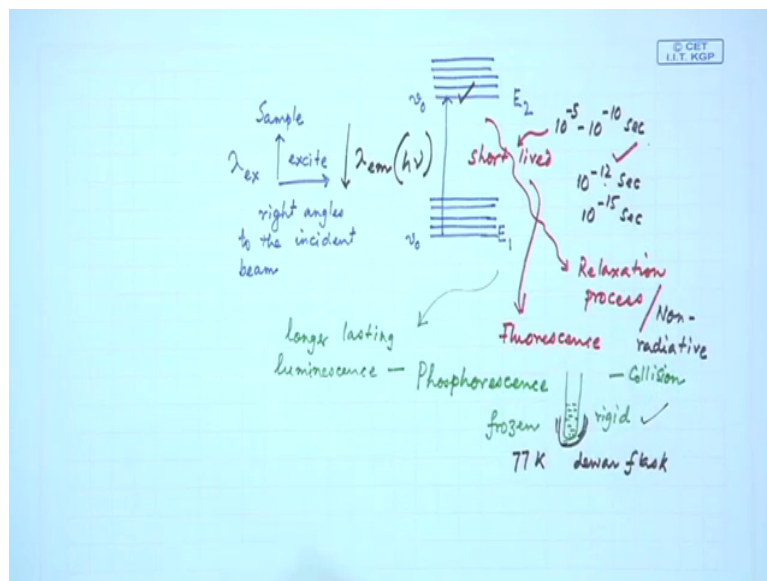 © CET
I.I.T. KGP
Sample
λex
excite
right angles
to the incident
beam
λem (hν)
v₀
E₂
v₀
E₁
short lived
10⁻⁵ - 10⁻¹⁰ sec
10⁻¹² sec
10⁻¹⁵ sec
Relaxation
process
Non-
radiative
Fluorescence
longer lasting
luminescence — Phosphorescence
— Collision
frozen
rigid
77 K dewar flask